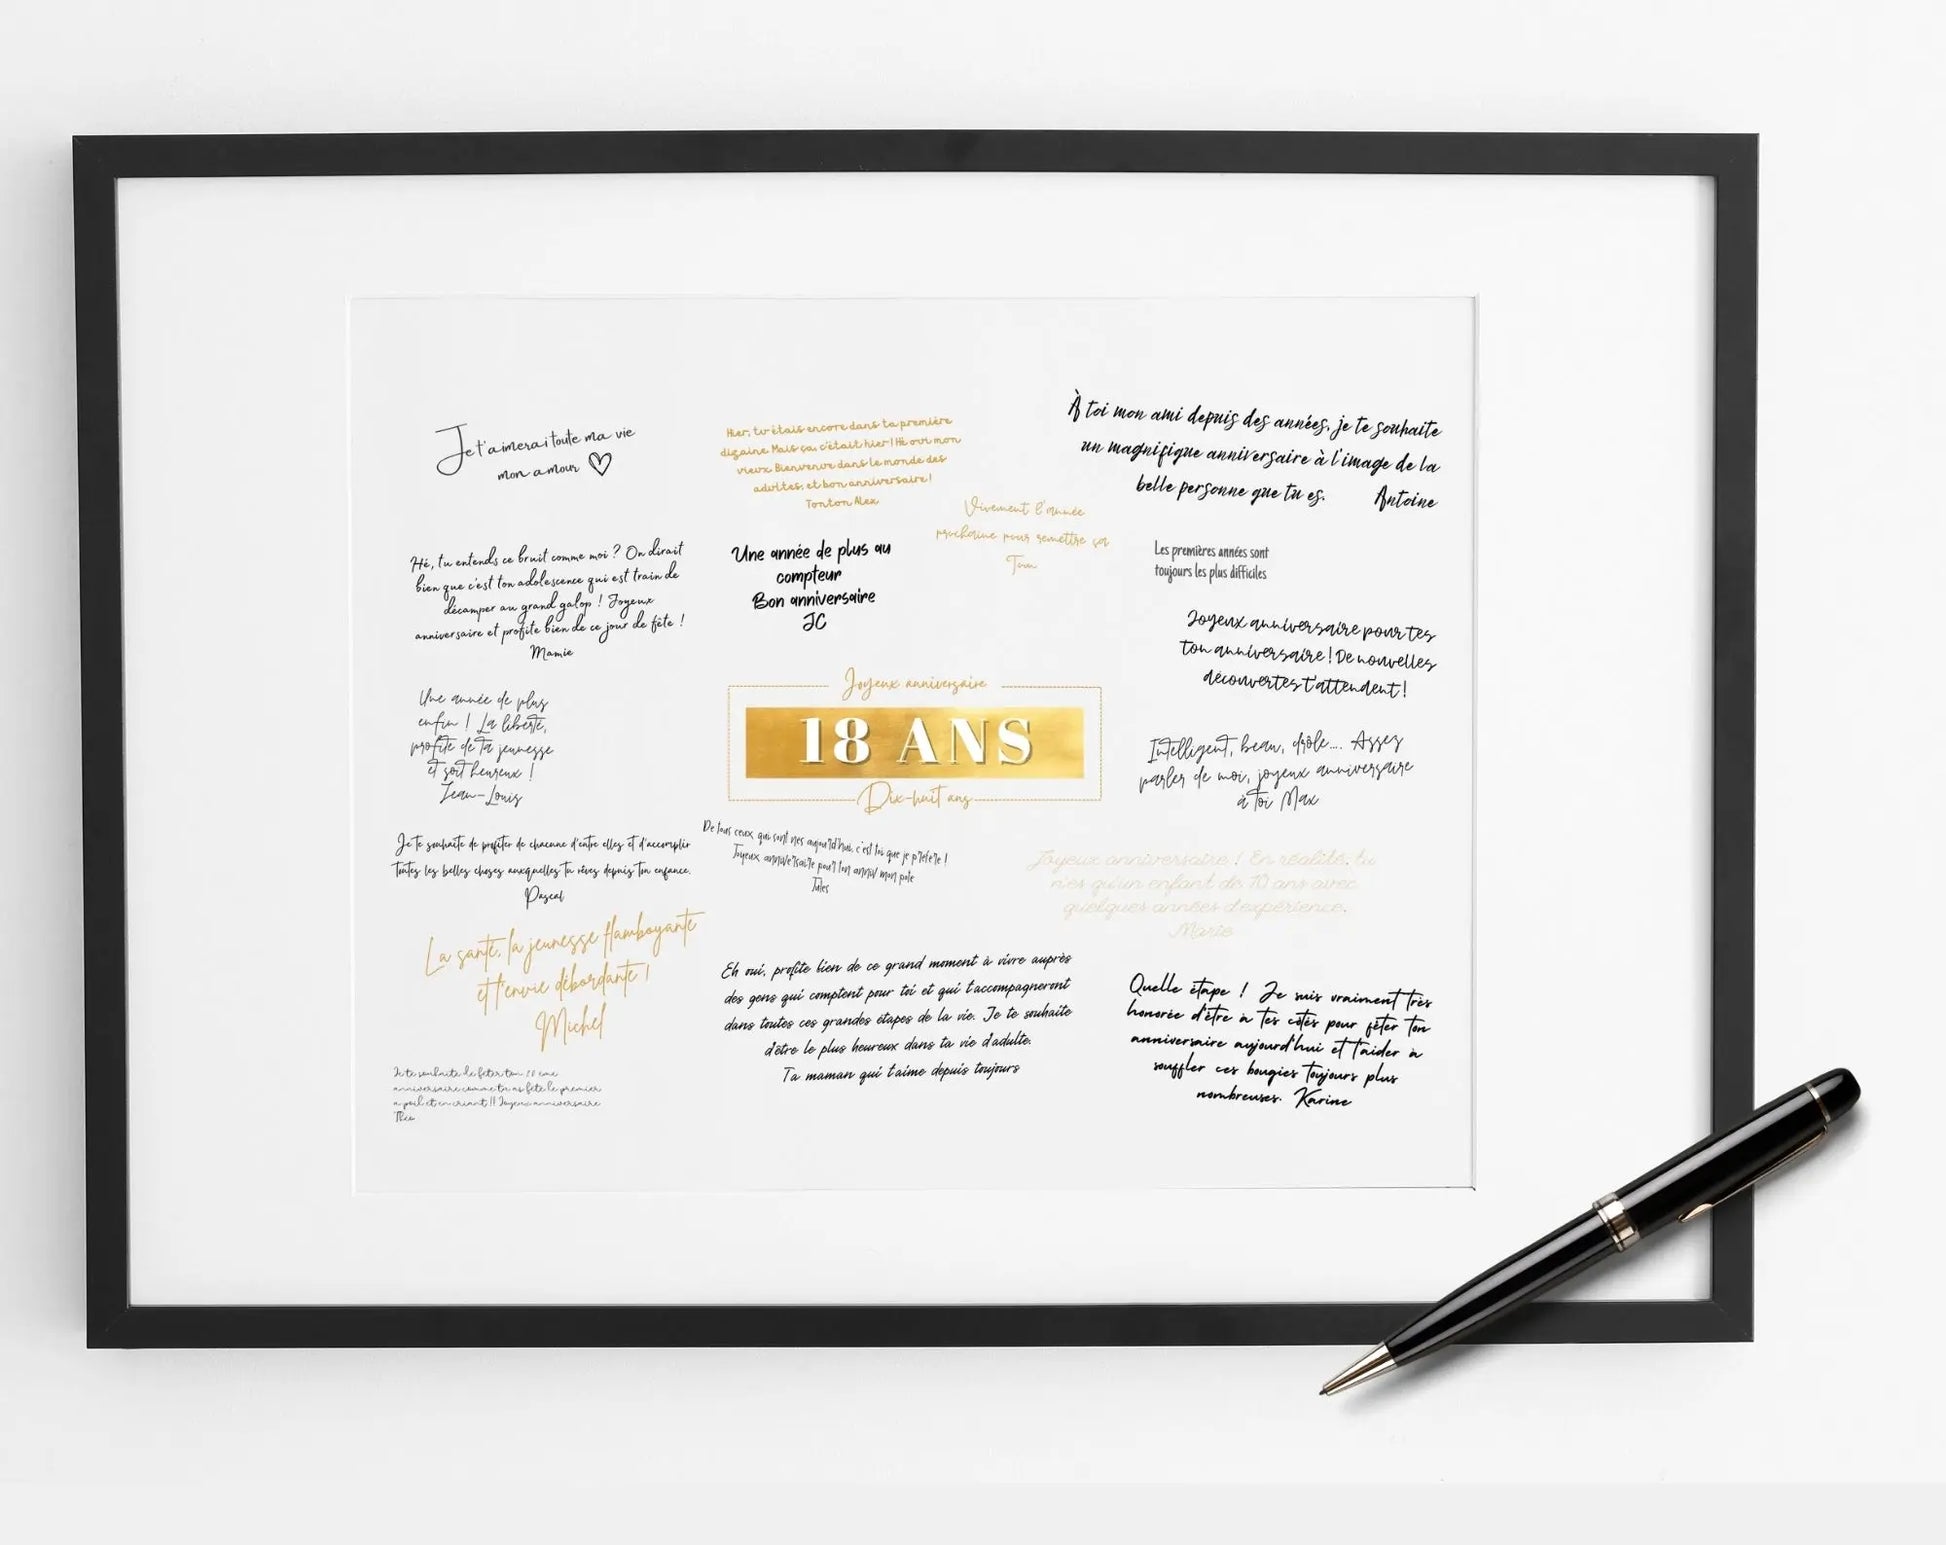 Je t'aimerai toute ma vie
mon amour
Hier, tu étais encore dans ta première
dizaine. Mais ça, c'était hier ! Hé oui mon
vieux. Bienvenue dans le monde des
adultes, et bon anniversaire !
Tonton Alex
À toi mon ami depuis des années, je te souhaite
un magnifique anniversaire à l'image de la
belle personne que tu es. Antoine
Vivement l'année
prochaine pour remettre ça
Tom
Hé, tu entends ce bruit comme moi ? On dirait
bien que c'est ton adolescence qui est train de
décamper au grand galop ! Joyeux
anniversaire et profite bien de ce jour de fête !
Mamie
Une année de plus au
compteur
Bon anniversaire
JC
Les premières années sont
toujours les plus difficiles
Joyeux anniversaire pour tes
ton anniversaire ! De nouvelles
découvertes t'attendent !
Une année de plus
enfin ! La liberté,
profite de ta jeunesse
et soit heureux !
Jean-Louis
Joyeux anniversaire
18 ANS
Dix-huit ans
Intelligent, beau, drôle.... Assez
parler de moi, joyeux anniversaire
à toi Max
Je te souhaite de profiter de chacune d'entre elles et d'accomplir
toutes les belles choses auxquelles tu rêves depuis ton enfance.
Pascal
De tous ceux qui sont nés aujourd'hui, c'est toi que je préfère !
Joyeux anniversaire pour ton anniv mon pote
Jules
Joyeux anniversaire ! En réalité, tu
n'es qu'un enfant de 10 ans avec
quelques années d'expérience.
Marie
La santé, la jeunesse flamboyante
et l'envie débordante !
Michel
Eh oui, profite bien de ce grand moment à vivre auprès
des gens qui comptent pour toi et qui t'accompagneront
dans toutes ces grandes étapes de la vie. Je te souhaite
d'être le plus heureux dans ta vie d'adulte.
Ta maman qui t'aime depuis toujours
Quelle étape ! Je suis vraiment très
honorée d'être à tes côtés pour fêter ton
anniversaire aujourd'hui et t'aider à
souffler ces bougies toujours plus
nombreuses. Karine
Je te souhaite de fêter ton
anniversaire comme tu as fêté le premier
à poil et en criant !! Joyeux anniversaire
Théo